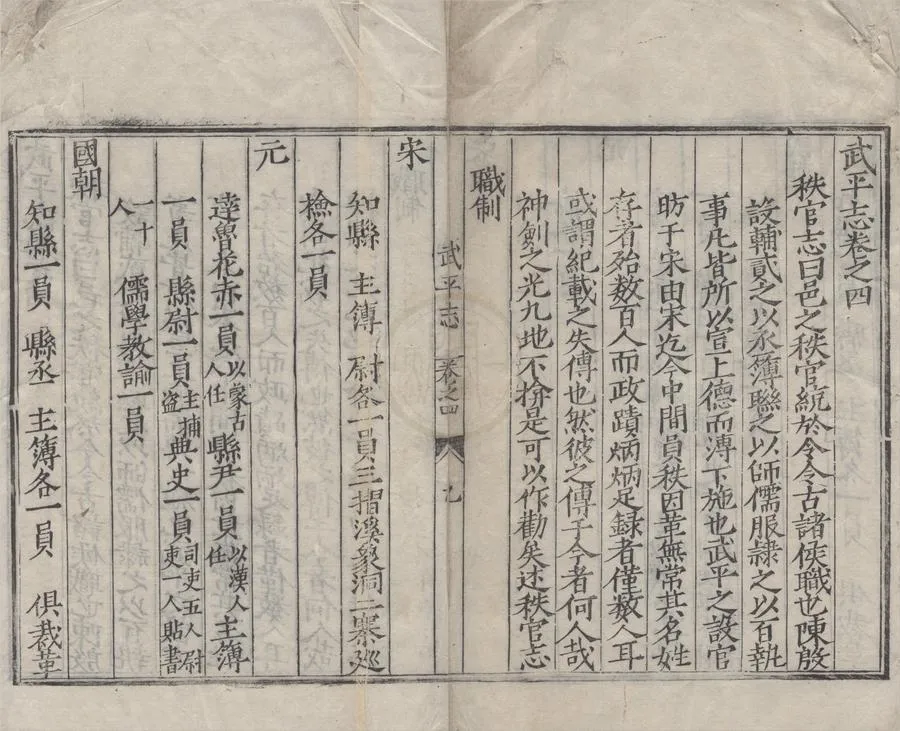 武平志卷之四
秩官志曰邑之秩官統於令令古諸侯職也陳殷
設輔貳之以丞簿聯之以師儒服隷之以百執
事凡皆所以宣上德而溥下施也武平之設官
昉于宋由宋迄今中間員秩因革無常其名姓
存者殆数百人而政蹟炳炳足録者僅数人耳
或謂紀載之失傳也然彼之傳于今者何人哉
神劍之光九地不揜是可以作勸矣述秩官志
職制
武平志 卷之四 九
宋
知縣 主簿 尉各一員三摺溪象洞二寨廵
檢各一員
元
達魯花赤一員以蒙古人任縣尹一員以漢人任主簿
一員 縣尉一員主捕盗典史一員司吏五人尉吏一人貼書
一十人 儒學教諭一員
國朝
知縣一員 縣丞 主簿各一員 俱裁革